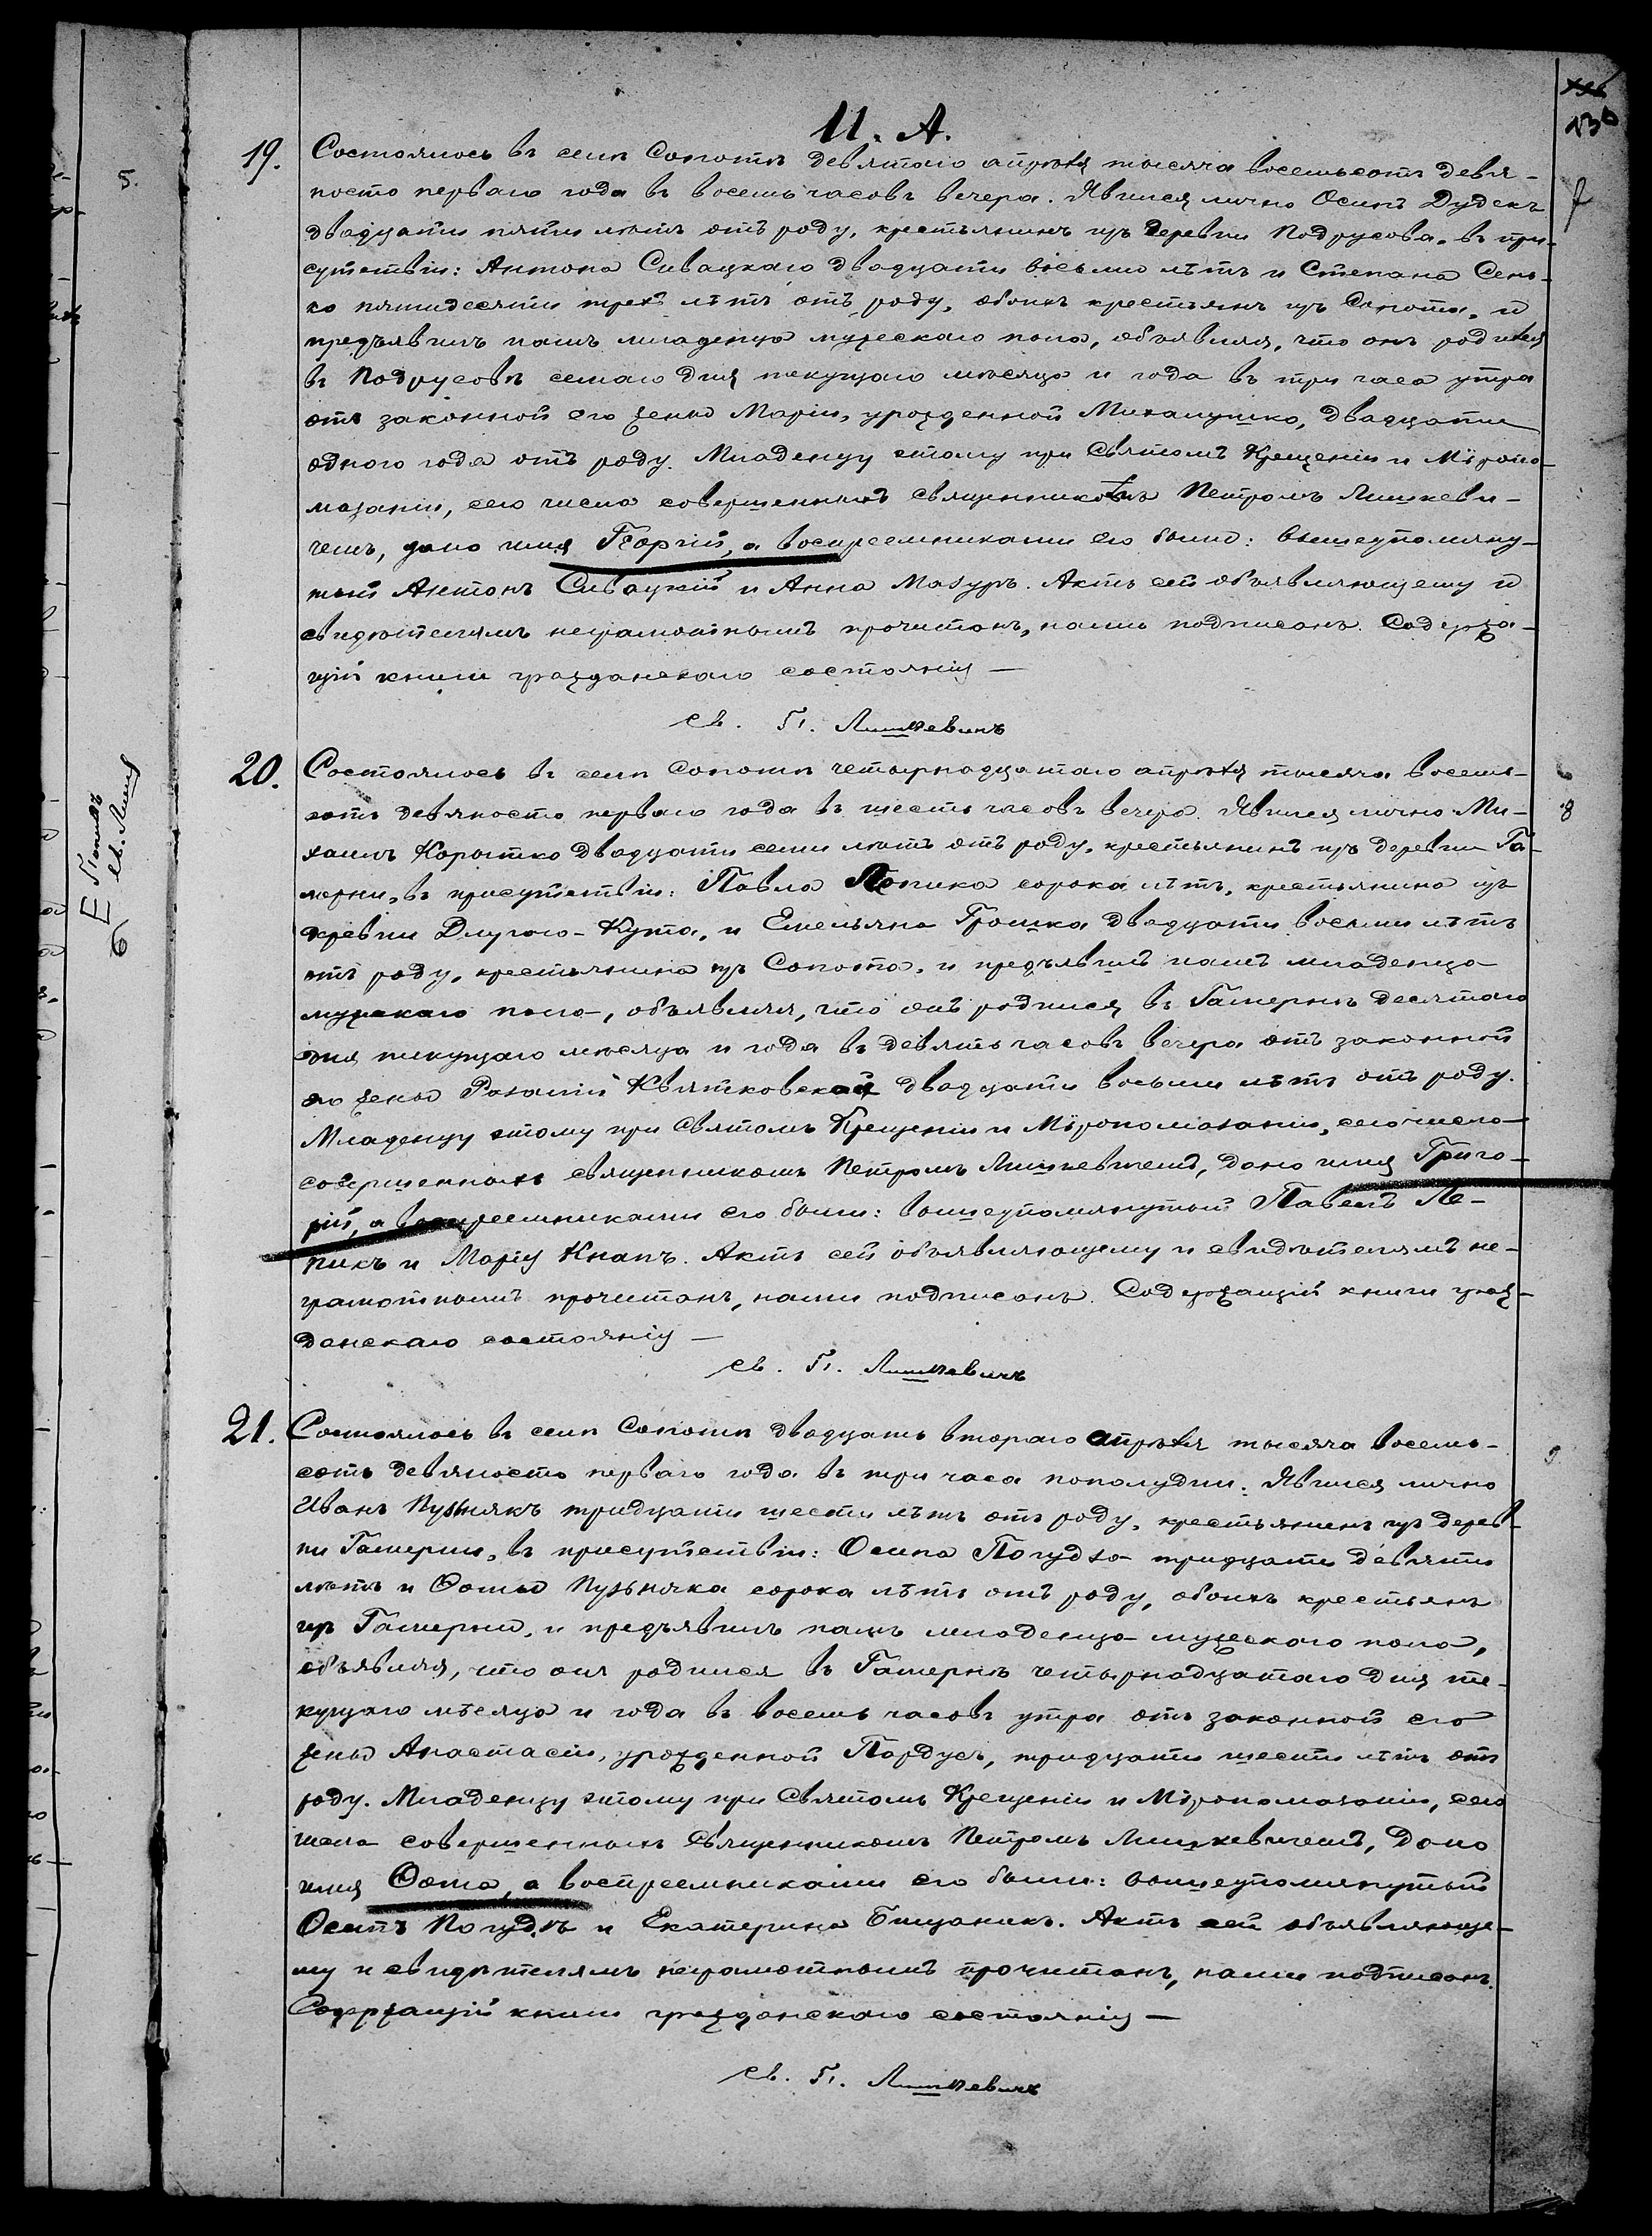 11. А.
130
19. Состоялось въ селѣ Сопотѣ девятаго апрѣля тысяча восемьсотъ девя-
носто перваго года въ восемь часовъ вечера. Явился лично Осипъ Дудекъ
двадцати пяти лѣтъ отъ роду, крестьянинъ изъ деревни Подрусова, въ при-
сутствіи: Антона Сивацкаго двадцати восьми лѣтъ и Степана Сень-
ко пятидесяти трехъ лѣтъ отъ роду, обоихъ крестьянъ изъ Сопота, и
предъявилъ намъ младенца мужескаго пола, объявляя, что онъ родился
въ Подрусовѣ седьмаго дня текущаго мѣсяца и года въ три часа утра
отъ законной его жены Маріи, урожденной Михалушко, двадцати
одного года отъ роду. Младенцу этому при Святомъ Крещеніи и Мѵропо-
мазаніи, сего числа совершенныхъ священникомъ Петромъ Лишкеви-
чемъ, дано имя Георгій, а воспреемниками его были: вышеупомяну-
тый Антонъ Сивацкій и Анна Мазуръ. Актъ сей объявляющему и
свидѣтелямъ неграмотнымъ прочитанъ, нами подписанъ. Содержа-
щій книги гражданскаго состоянія —
св. П. Лишкевичъ
20. Состоялось въ селѣ Сопотѣ четырнадцатаго апрѣля тысяча восемь-
сотъ девяносто перваго года въ шесть часовъ вечера. Явился лично Ми-
хаилъ Коротко двадцати семи лѣтъ отъ роду, крестьянинъ изъ деревни Га-
мерни, въ присутствіи: Павла Лепика сорока лѣтъ, крестьянина изъ
деревни Длугого-Кута, и Емельяна Грошка двадцати восьми лѣтъ
отъ роду, крестьянина изъ Сопота, и предъявилъ намъ младенца
мужескаго пола, объявляя, что онъ родился въ Гамернѣ десятаго
дня текущаго мѣсяца и года въ девять часовъ вечера отъ законной
его жены Розаліи Квятковской двадцати восьми лѣтъ отъ роду.
Младенцу этому при Святомъ Крещеніи и Мѵропомазаніи, сего числа
совершенныхъ священникомъ Петромъ Лишкевичемъ, дано имя Григо-
рій, а воспреемниками его были: вышеупомянутый Павелъ Ле-
пикъ и Марія Кнапъ. Актъ сей объявляющему и свидѣтелямъ не-
грамотнымъ прочитанъ, нами подписанъ. Содержащій книги граж-
данскаго состоянія —
св. П. Лишкевичъ
21. Состоялось въ селѣ Сопотѣ двадцать втораго апрѣля тысяча восемь-
сотъ девяносто перваго года въ три часа пополудни. Явился лично
Иванъ Пузнякъ тридцати шести лѣтъ отъ роду, крестьянинъ изъ дерев-
ни Гамерни, въ присутствіи: Осипа тридцати девяти
лѣтъ и Ѳомы Пузняка сорока лѣтъ отъ роду, обоихъ крестьянъ
изъ Гамерни, и предъявилъ намъ младенца мужескаго пола,
объявляя, что онъ родился въ Гамернѣ четырнадцатаго дня те-
кущаго мѣсяца и года въ восемь часовъ утра отъ законной его
жены Анастасіи, урожденной Пардусъ, тридцати шести лѣтъ отъ
роду. Младенцу этому при Святомъ Крещеніи и Мѵропомазаніи, сего
числа совершенныхъ священникомъ Петромъ Лишкевичемъ, дано
имя Ѳома, а воспреемниками его были: вышеупомянутый
Осипъ и Екатерина. Актъ сей объявляюще-
му и свидѣтелямъ неграмотнымъ прочитанъ, нами подписанъ.
Содержащій книги гражданскаго состоянія —
св. П. Лишкевичъ